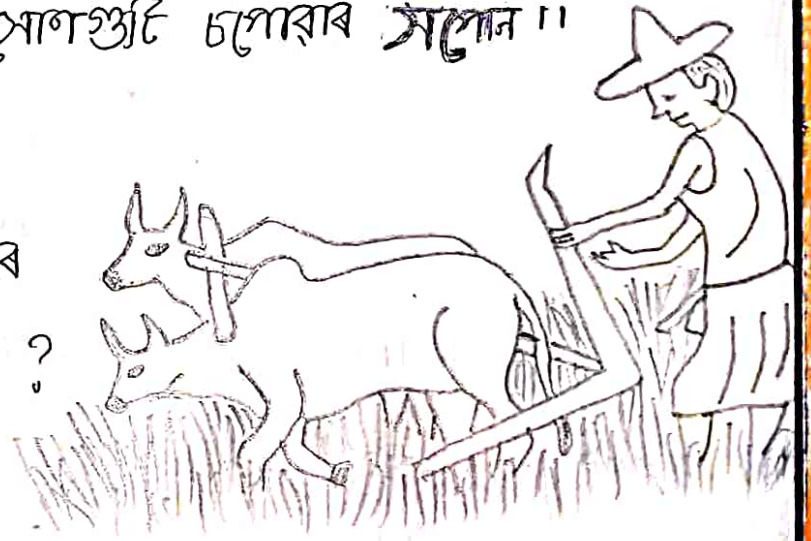 সোণগুটি চপোৱাৰ সপোন ॥
ৰ
?